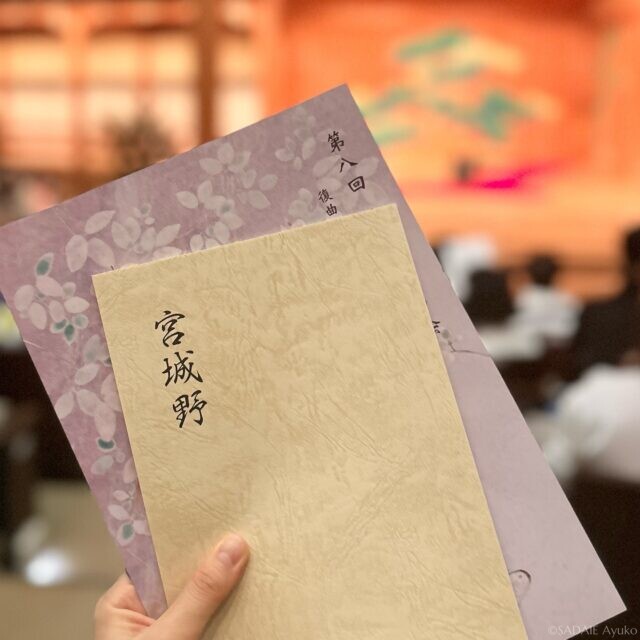 第八回
復曲
宮城野
©SADAIE Ayuko